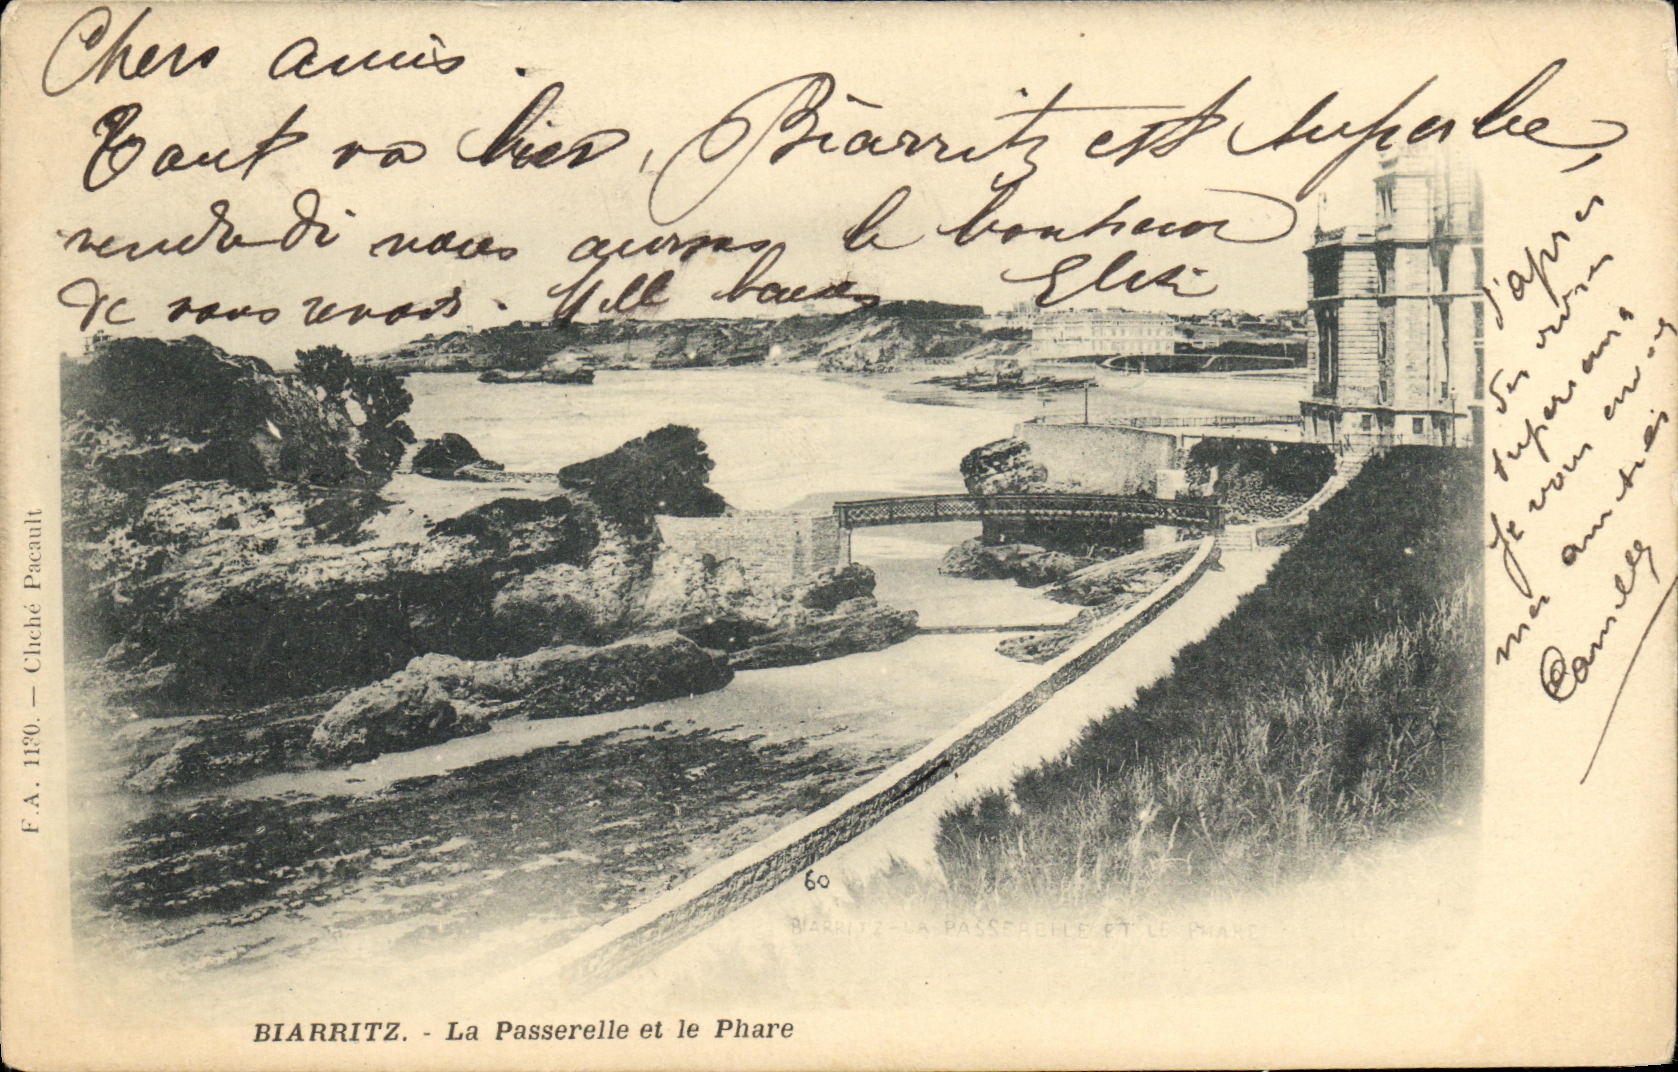 Chers amis.
Tout va bien, Biarritz est superbe,
vendredi nous aurons le bonheur
de vous revoir. Mill baises
j'apres
des
Je vous envoie
mes amitiés
Camille
F. A. 1180. — Cliché Pacault
60
BIARRITZ - LA PASSERELLE ET LE PHARE
BIARRITZ. - La Passerelle et le Phare